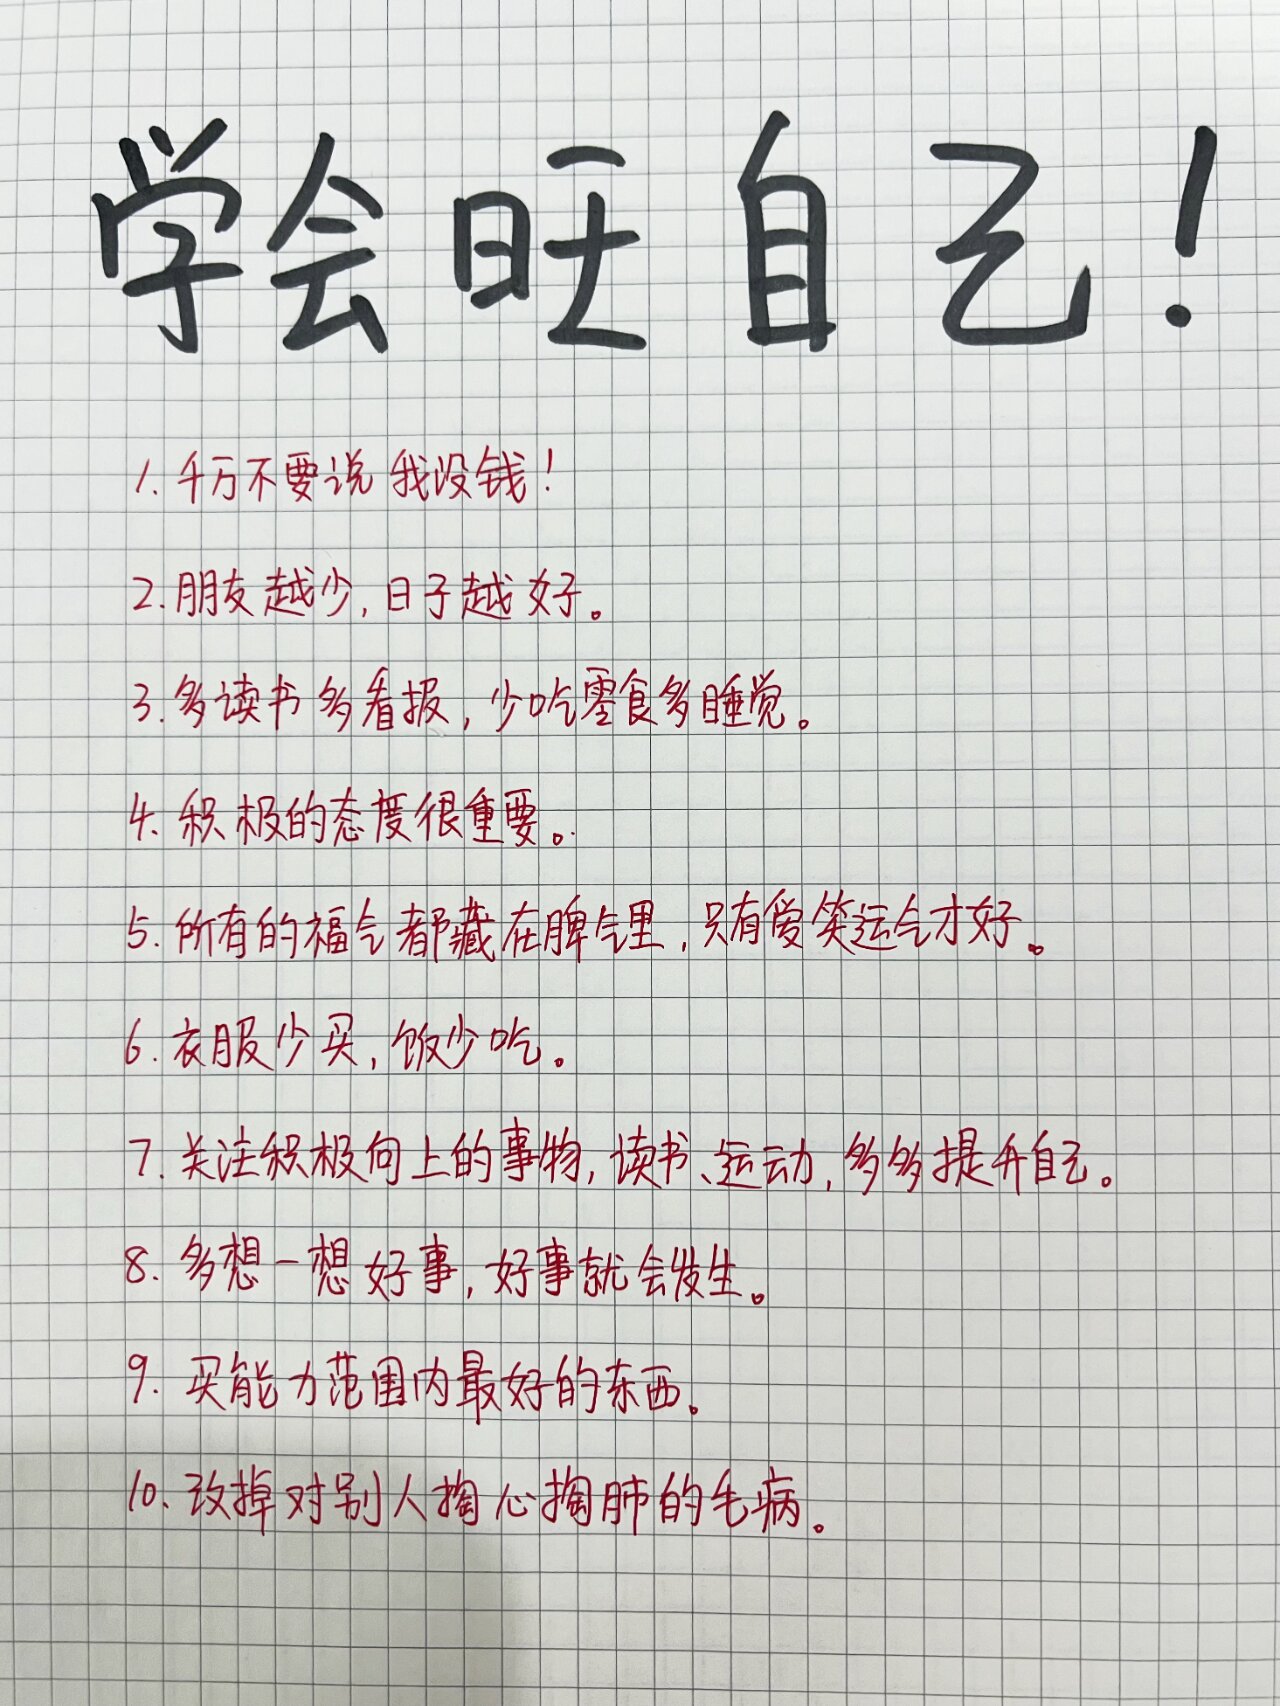 学会旺自己!
1.千万不要说我没钱!
2.朋友越少,日子越好。
3.多读书多看报,少吃零食多睡觉。
4.积极的态度很重要。
5.所有的福气都藏在脾气里,只有爱笑运气才好。
6.衣服少买,饭少吃。
7.关注积极向上的事物,读书、运动,多多提升自己。
8.多想一想好事,好事就会发生。
9.买能力范围内最好的东西。
10.改掉对别人掏心掏肺的毛病。